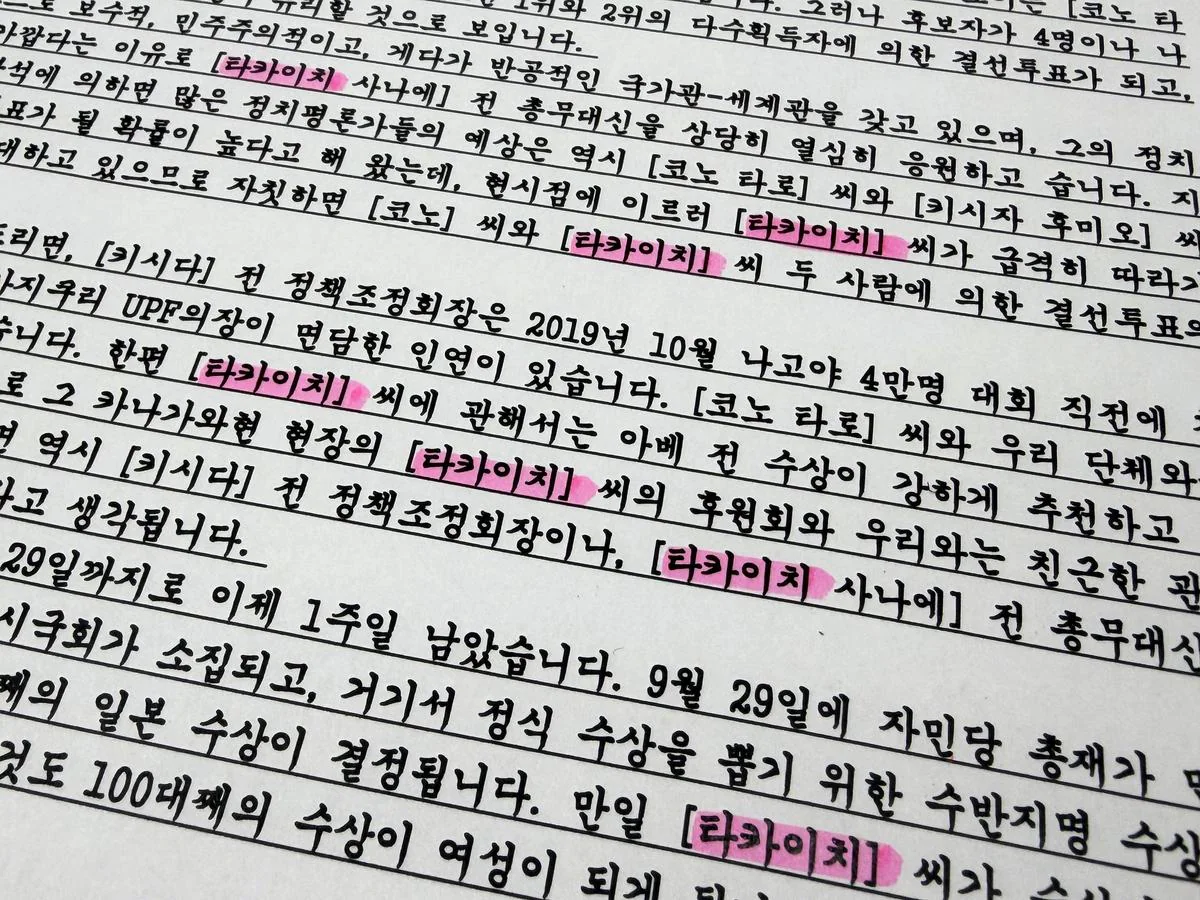 유리할 것으로 보입니다. 1위와 2위의 다수획득자에 의한 결선투표가 되고,
그러나 후보자가 4명이나 나
[코노 타
보수적, 민주주의적이고, 게다가 반공적인 국가관-세계관을 갖고 있으며, 그의 정치
아깝다는 이유로 [타카이치 사나에] 전 총무대신을 상당히 열심히 응원하고 습니다. 지
의하면 많은 정치평론가들의 예상은 역시 [코노 타로] 씨와 [키시자 후미오] 씨
표가 될 확률이 높다고 해 왔는데, 현시점에 이르러 [타카이치] 씨가 급격히 따라
대하고 있으므로 자칫하면 [코노] 씨와 [타카이치] 씨 두 사람에 의한 결선투표의
드리면, [키시다] 전 정책조정회장은 2019년 10월 나고야 4만명 대회 직전에
UPF의장이 면담한 인연이 있습니다. [코노 타로] 씨와 우리 단체와
습니다. 한편 [타카이치] 씨에 관해서는 아베 전 수상이 강하게 추천하고
로 그 카나가와현 현장의 [타카이치] 씨의 후원회와 우리와는 친근한 관
면 역시 [키시다] 전 정책조정회장이나, [타카이치 사나에] 전 총무대신
라고 생각됩니다.
29일까지로 이제 1주일 남았습니다. 9월 29일에 자민당 총재가
시국회가 소집되고, 거기서 정식 수상을 뽑기 위한 수반지명
째의 일본 수상이 결정됩니다. 만일 [타카이치] 씨가 수상
것도 100대째의 수상이 여성이 되게